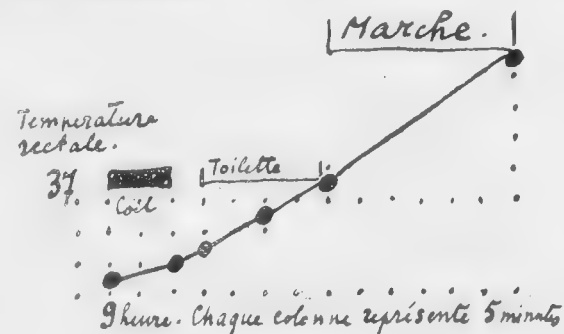 Marche.
Température
rectale.
Toilette
37
Coït
9 heure. Chaque colonne représente 5 minutes